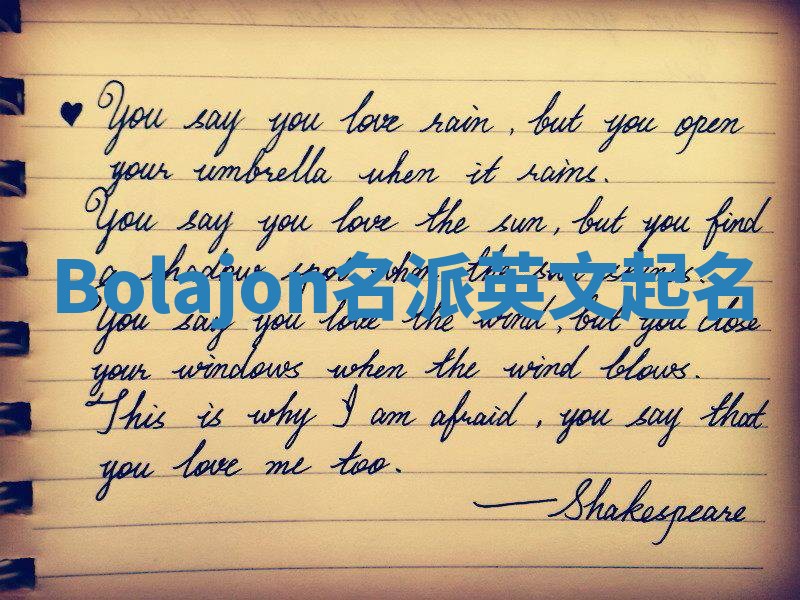 ♥ You say you love rain, but you open
your umbrella when it rains.
You say you love the sun, but you find
a shadow spot when the sun shines.
Bolajon名派英文起名
You say you love the wind, but you close
your windows when the wind blows.
This is why I am afraid, you say that
you love me too.
—Shakespeare